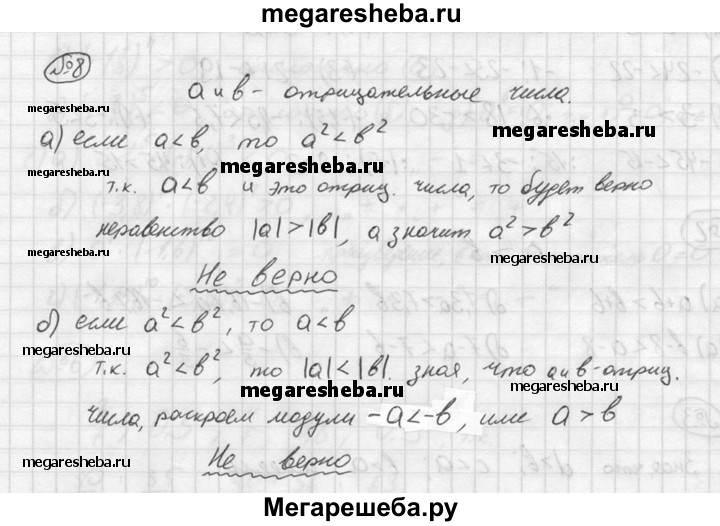 megaresheba.ru
№8
а и в - отрицательные числа.
megaresheba.ru
megaresheba.ru
а) если a<в, то a²<в²
megaresheba.ru
т.к. a<в и это отриц. числа, то будет верно
megaresheba.ru
неравенство |a|>|в|, а значит a²>в²
megaresheba.ru
megaresheba.ru
Не верно
б) если a²<в², то a<в
megaresheba.ru
т.к. a²<в², то |a|<|в|. зная, что а и в-отриц.
megaresheba.ru
megaresheba.ru
числа, раскроем модули -a<-в, или a>в
megaresheba.ru
megaresheba.ru
Не верно
Мегарешеба.ру